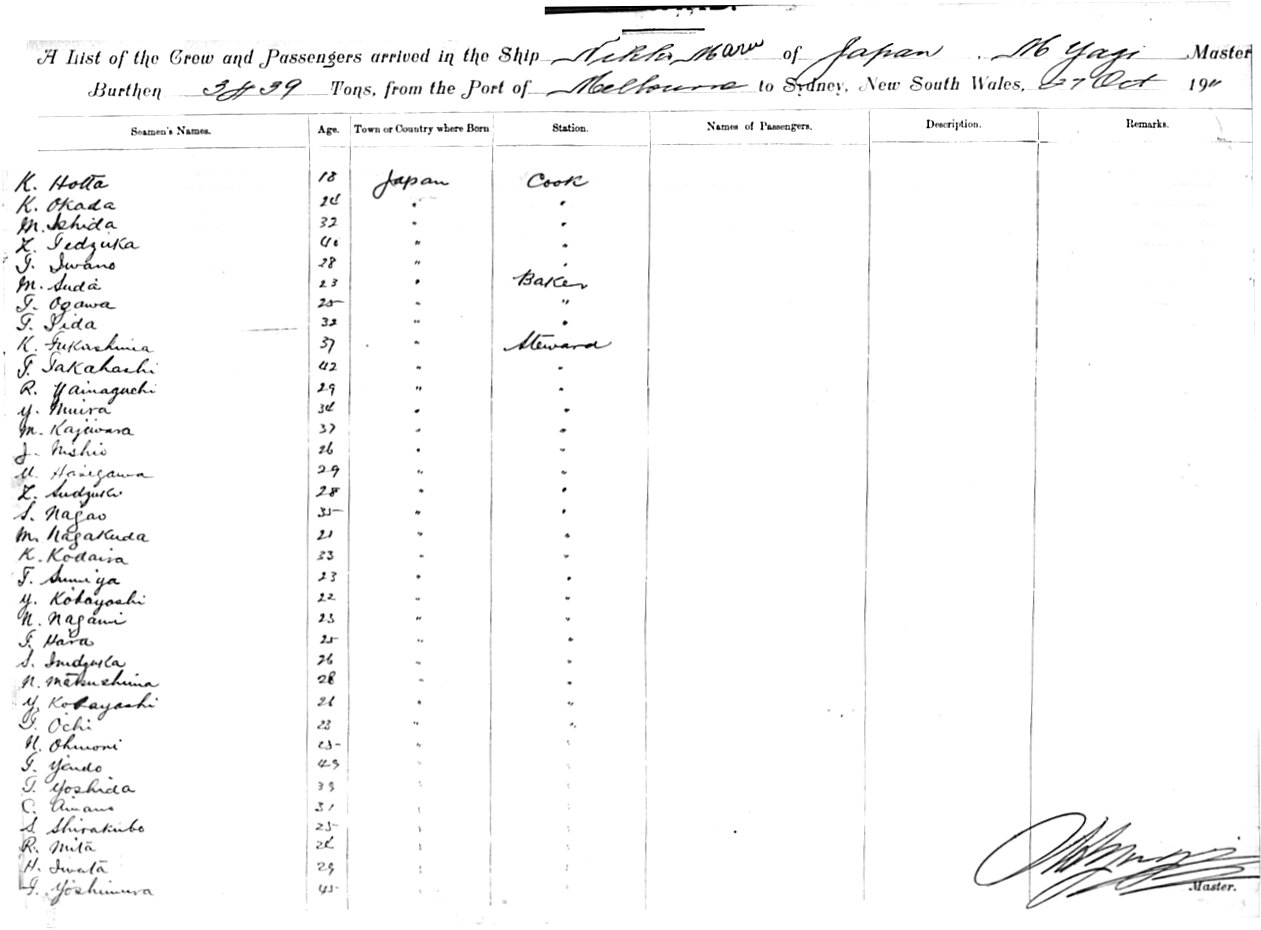 A List of the Crew and Passengers arrived in the Ship Nikko Maru of Japan. M Yagi Master
Burthen Tons, from the Port of Melbourne to Sydney, New South Wales, 27 Oct 191
Seamen's Names. Age. Town or Country where Born Station. Names of Passengers. Description. Remarks.
K. Hotta 18 Japan Cook
K. Okada 24 " "
M. Ishida 32 " "
Z. Tedzuka 40 " "
T. Iwano 28 " "
M. Suda 23 " Baker
T. Ogawa 25 " "
T. Iida 32 " "
K. Fukushima 37 " Steward
T. Takahashi 42 " "
R. Yamaguchi 29 " "
Y. Muira 34 " "
M. Kajiwara 37 " "
J. Nishio 26 " "
U. Hasegawa 29 " "
Z. Sudzuki 28 " "
S. Nagao 35 " "
M. Nagakuda 21 " "
K. Kodaira 33 " "
T. Sumiya 23 " "
Y. Kobayashi 22 " "
N. Nagami 23 " "
T. Hara 25 " "
S. 26 " "
N. 28 " "
Y. Kobayashi 26 " "
T. Ochi 23 " "
N. Ohmori 25 " "
T. Yendo 49 " "
T. Yoshida 33 " "
C. Amano 31 " "
S. Shirakubo 25 " "
R. Mita 24 " "
H. Iwata 29 " "
T. Yoshimura 45 " "
Master.